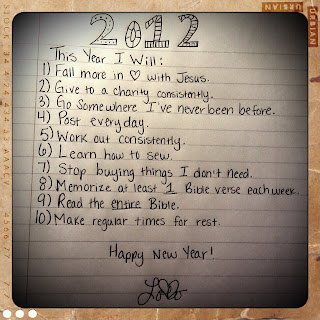 2012
This Year I Will:
1) Fall more in ♡ with Jesus.
2) Give to a charity consistently.
3) Go Somewhere I've never been before.
4) Post everyday.
5) Work out consistently.
6) Learn how to sew.
7) Stop buying things I don't need.
8) Memorize at least 1 Bible verse each week.
9) Read the entire Bible.
10) Make regular times for rest.
Happy New Year!